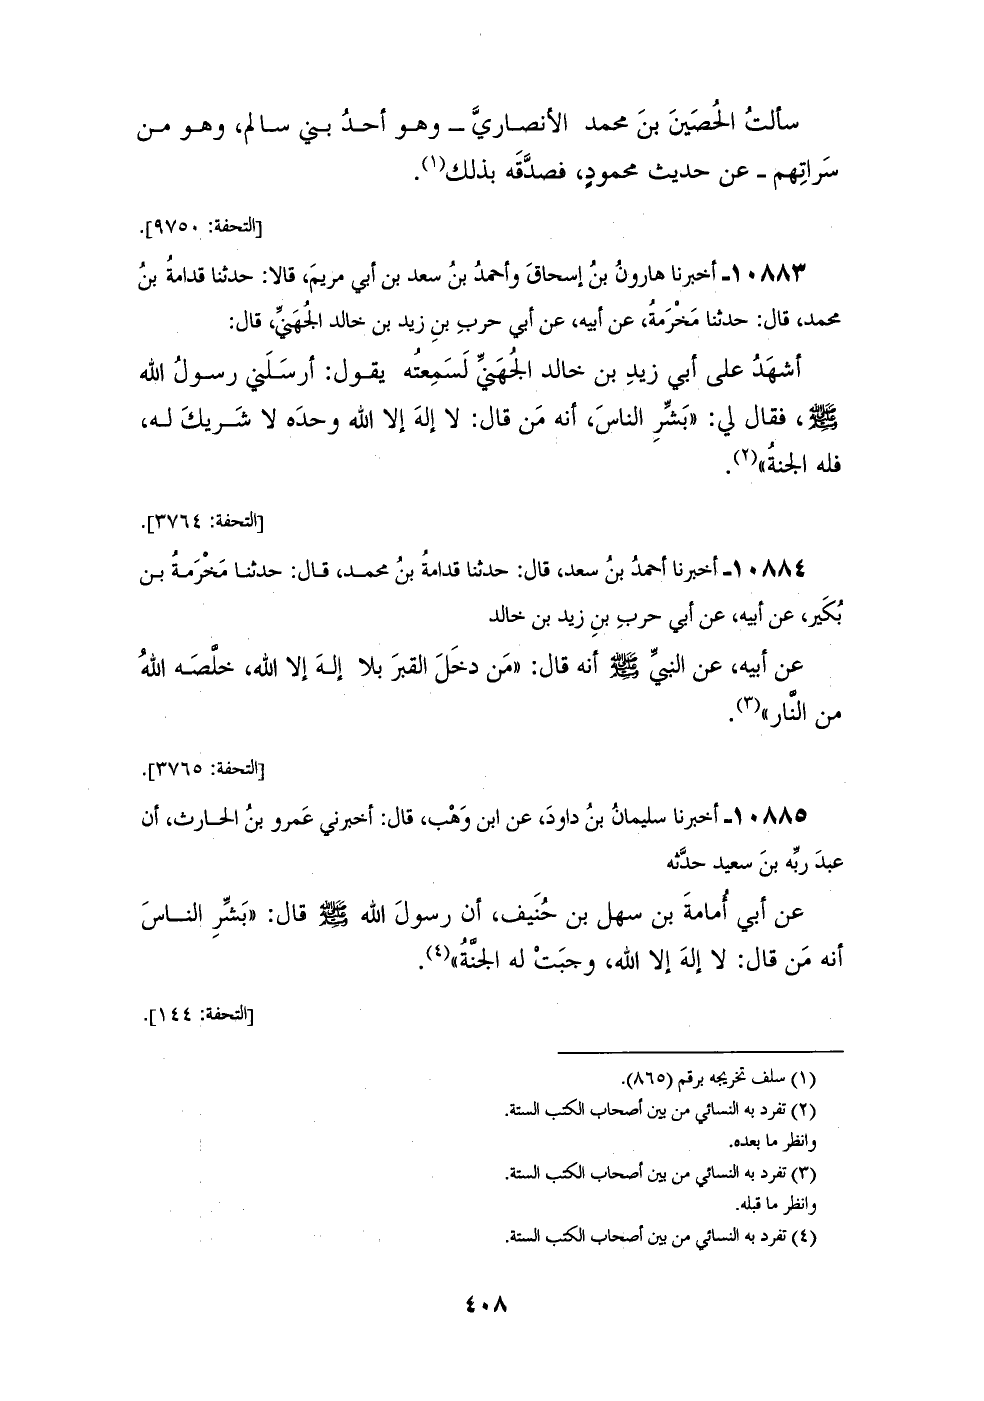 سألتُ الحُصَينَ بنَ محمد الأنصاريَّ ــ وهو أحدُ بني سالم، وهو من
سَراتِهم ــ عن حديث محمودٍ، فصدَّقَه بذلك(١).
[التحفة: ٩٧٥٠].
١٠٨٨٣ـ أخبرنا هارونُ بنُ إسحاقَ وأحمدُ بنُ سعد بن أبي مريمَ، قالا: حدثنا قدامةُ بنُ
محمد، قال: حدثنا مَخْرَمةُ، عن أبيه، عن أبي حربِ بنِ زيد بن خالد الجُهَنيِّ، قال:
أشهَدُ على أبي زيدِ بن خالد الجُهَنيِّ لَسَمِعتُه يقول: أرسَلَني رسولُ الله
ﷺ، فقال لي: «بَشِّرِ الناسَ، أنه مَن قال: لا إلهَ إلا الله وحدَه لا شَريكَ له،
فله الجنةُ»(٢).
[التحفة: ٣٧٦٤].
١٠٨٨٤ـ أخبرنا أحمدُ بنُ سعد، قال: حدثنا قدامةُ بنُ محمد، قال: حدثنا مَخْرَمةُ بن
بُكَير، عن أبيه، عن أبي حربِ بنِ زيد بن خالد
عن أبيه، عن النبيِّ ﷺ أنه قال: «مَن دخَلَ القبرَ بلا إلهَ إلا الله، خلَّصَه اللهُ
من النَّار»(٣).
[التحفة: ٣٧٦٥].
١٠٨٨٥ـ أخبرنا سليمانُ بنُ داودَ، عن ابن وَهْب، قال: أخبرني عَمرو بنُ الحارث، أن
عبدَ ربِّه بنَ سعيد حدَّثه
عن أبي أُمامةَ بن سهل بن حُنَيف، أن رسولَ الله ﷺ قال: «بَشِّرِ الناسَ
أنه مَن قال: لا إلهَ إلا الله، وجبَتْ له الجنَّةُ»(٤).
[التحفة: ١٤٤].
(١) سلف تخريجه برقم (٨٦٥).
(٢) تفرد به النسائي من بين أصحاب الكتب الستة.
وانظر ما بعده.
(٣) تفرد به النسائي من بين أصحاب الكتب الستة.
وانظر ما قبله.
(٤) تفرد به النسائي من بين أصحاب الكتب الستة.
٤٠٨